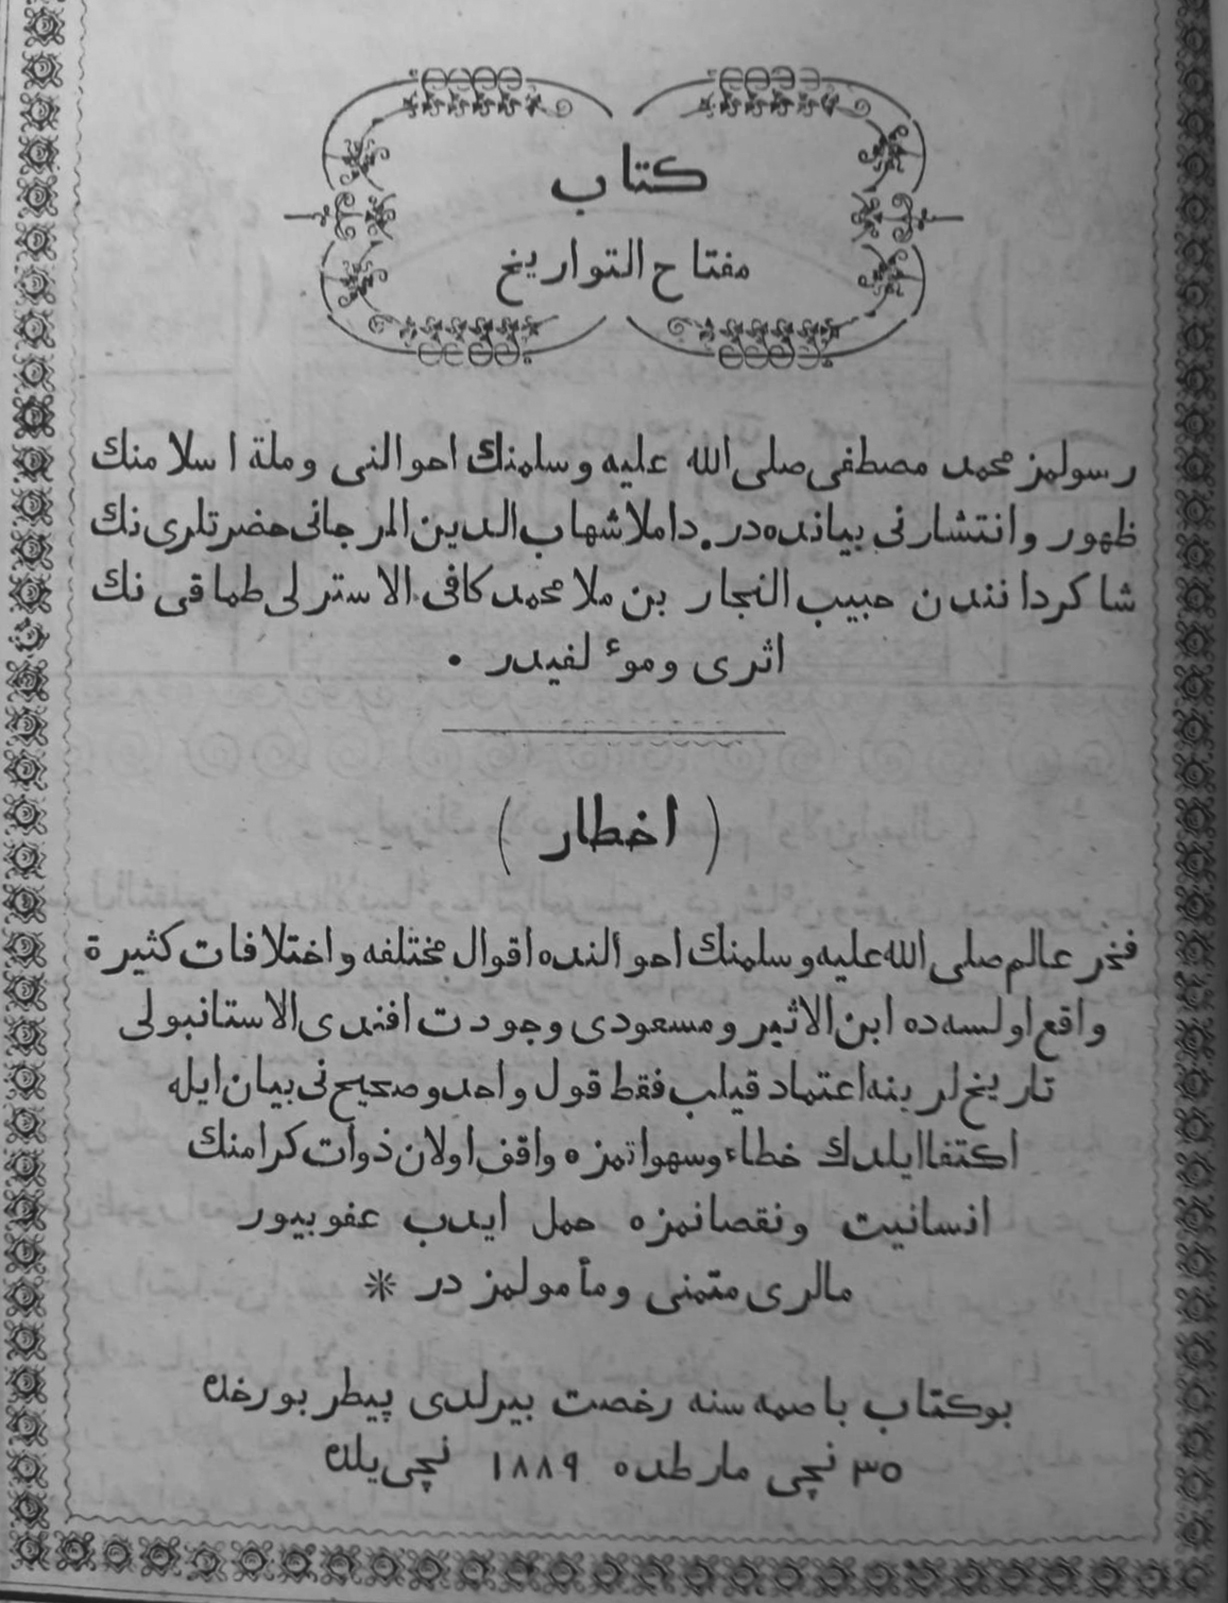 كتاب
مفتاح التواريخ
رسولمز محمد مصطفى صلى الله عليه وسلمنك احوالنى وملة اسلامنك
ظهور وانتشارنى بياندهدر. داملا شهاب الدين المرجانى حضرتلرى نك
شاكردانندن حبيب النجار بن ملا محمد كافى الاسترلى طماقى نك
اثرى وموءلفيدر .
( اخطار )
فخر عالم صلى الله عليه وسلمنك احوالنده اقوال مختلفه واختلافات كثيرة
واقع اولسهده ابن الاثير ومسعودى وجودت افندى الاستانبولى
تاريخلرينه اعتماد قيلب فقط قول واحد وصحيح نى بيان ايله
اكتفا ايلدك خطاء وسهواتمزه واقف اولان ذوات كرامنك
انسانيت ونقصانمزه حمل ايدب عفو بيور
مالرى متمنى ومأمولمز در *
بوكتاب باصمه سنه رخصت بيرلدى پيطربورخده
٣٥ نچى مارطده ١٨٨٩ نچى يلده